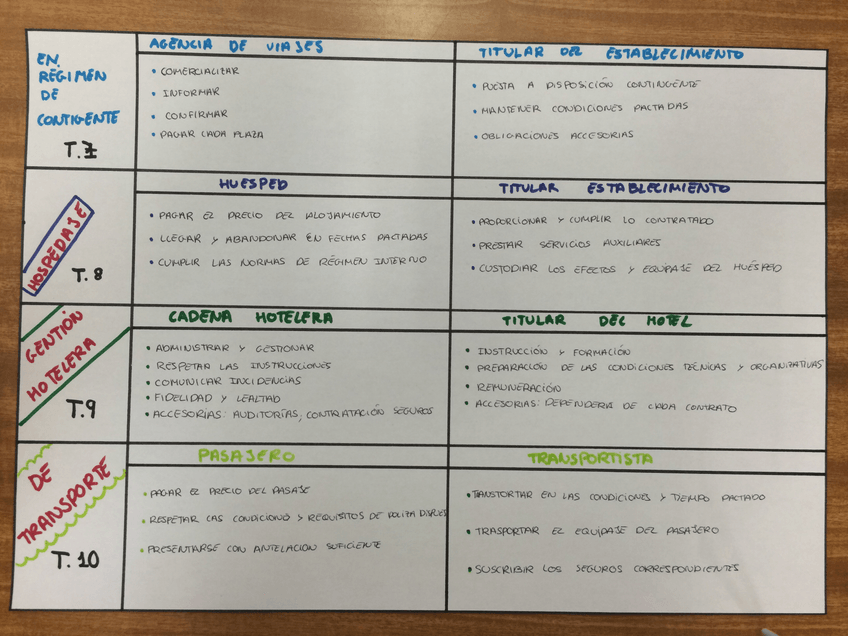 EN
RÉGIMEN
DE
CONTIGENTE
T.7
AGENCIA DE VIAJES
• COMERCIALIZAR
• INFORMAR
• CONFIRMAR
• PAGAR CADA PLAZA
TITULAR DEL ESTABLECIMIENTO
• PUESTA A DISPOSICIÓN CONTINGENTE
• MANTENER CONDICIONES PACTADAS
• OBLIGACIONES ACCESORIAS
HOSPEDAJE
T.8
HUESPED
• PAGAR EL PRECIO DEL ALOJAMIENTO
• LLEGAR Y ABANDONAR EN FECHAS PACTADAS
• CUMPLIR LAS NORMAS DE RÉGIMEN INTERNO
TITULAR ESTABLECIMIENTO
• PROPORCIONAR Y CUMPLIR LO CONTRATADO
• PRESTAR SERVICIOS AUXILIARES
• CUSTODIAR LOS EFECTOS Y EQUIPAJE DEL HUÉSPED
GENTIÓN
HOTELERA
T.9
CADENA HOTELERA
• ADMINISTRAR Y GESTIONAR
• RESPETAR LAS INSTRUCCIONES
• COMUNICAR INCIDENCIAS
• FIDELIDAD Y LEALTAD
• ACCESORIAS: AUDITORÍAS, CONTRATACIÓN SEGUROS
TITULAR DEL HOTEL
• INSTRUCCIÓN Y FORMACIÓN
• PREPARACIÓN DE LAS CONDICIONES TÉCNICAS Y ORGANIZATIVAS
• REMUNERACIÓN
• ACCESORIAS: DEPENDERIA DE CADA CONTRATO
DE
TRANSPORTE
T.10
PASAJERO
• PAGAR EL PRECIO DEL PASAJE
• RESPETAR LAS CONDICIONES Y REQUISITOS DE POLIZA
• PRESENTARSE CON ANTELACIÓN SUFICIENTE
TRANSPORTISTA
• TRANSTORTAR EN LAS CONDICIONES Y TIEMPO PACTADO
• TRASPORTAR EL EQUIPAJE DEL PASAJERO
• SUSCRIBIR LOS SEGUROS CORRESPONDIENTES